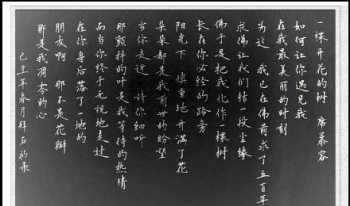 一棵开花的树 席慕容
如何让你遇见我
在我最美丽的时刻
为这 我已在佛前求了五百年
求佛让我们结一段尘缘
佛于是把我化作一棵树
长在你必经的路旁
阳光下 慎重地开满了花
朵朵都是我前世的盼望
当你走近 请你细听
那颤抖的叶是我等待的热情
而当你终于无视地走过
在你身后落了一地的
朋友啊 那不是花瓣
那是我凋零的心